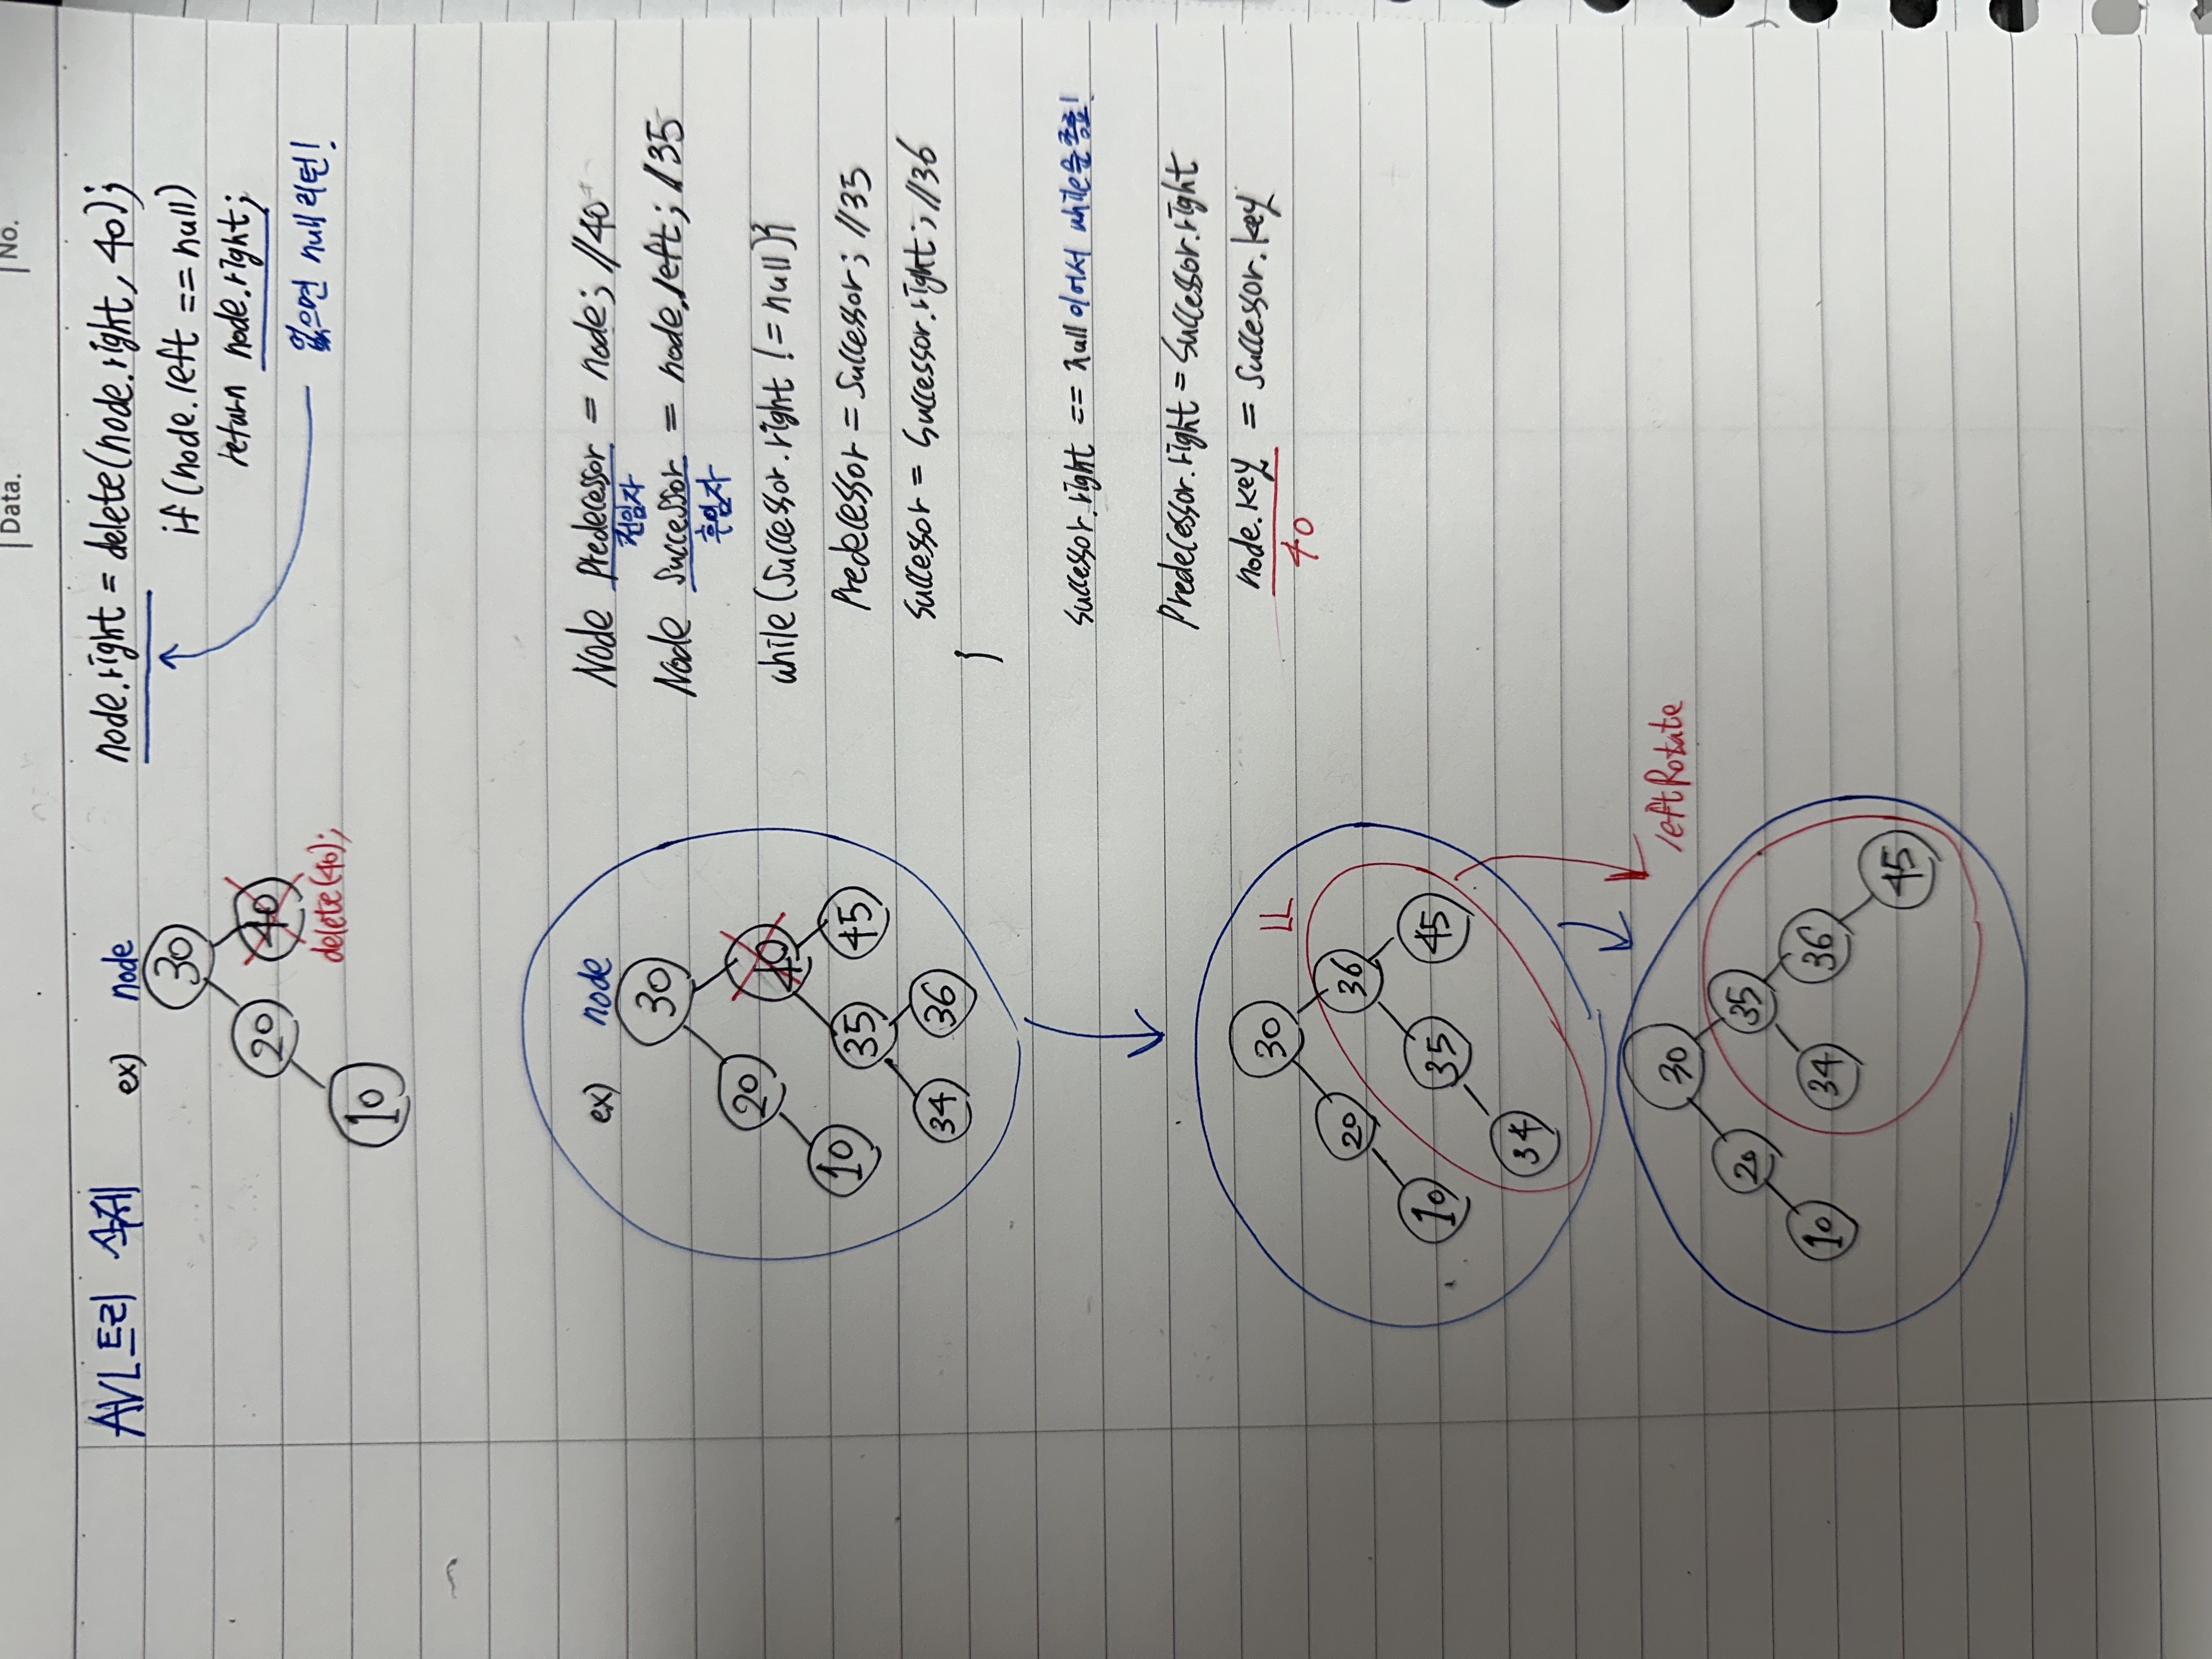 Data.
No.
AVL트리 삭제
ex) node
30
20 40
delete(40);
10
node.right = delete(node.right, 40);
if(node.left == null)
return node.right;
없으면 null 리턴!
ex) node
30
20 40
10 35 45
34 36
Node Predecessor = node; //40
전임자
Node Successor = node.left; //35
후임자
while(Successor.right != null){
Predecessor = Successor; //35
Successor = Successor.right; //36
}
Successor.right == null 이어서 while문 종료!
Predecessor.right = Successor.right
node.key = Successor.key
40
30 LL
20 36
10 35 45
34
leftRotate
30
20 35
10 34 36
45